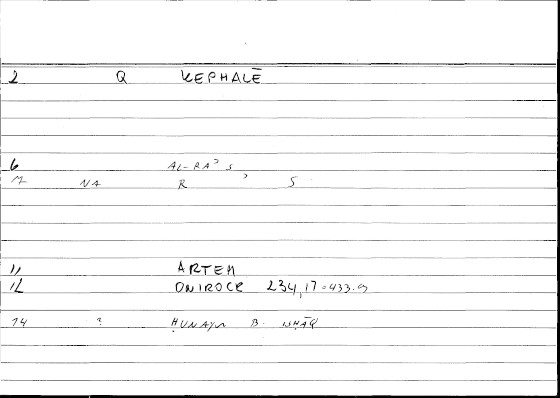 2 Q KEPHALĒ
6 AL-RAʾS
7 NA R ʾ S
11 ARTEM
12 ONIROCR 234,17 = 433.9
14 ? ḤUNAYN B. ISḤĀQ